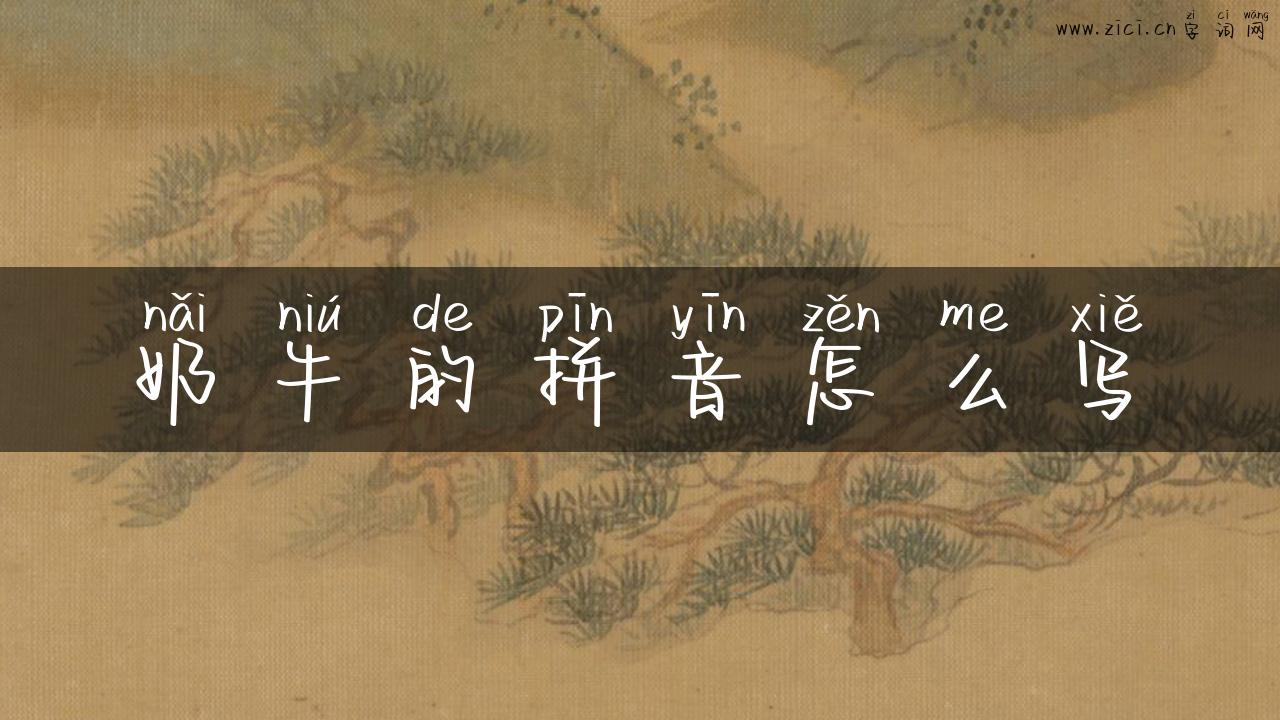 zì cí wǎng
www.zici.cn 字词网
nǎi niú de pīn yīn zěn me xiě
奶牛的拼音怎么写